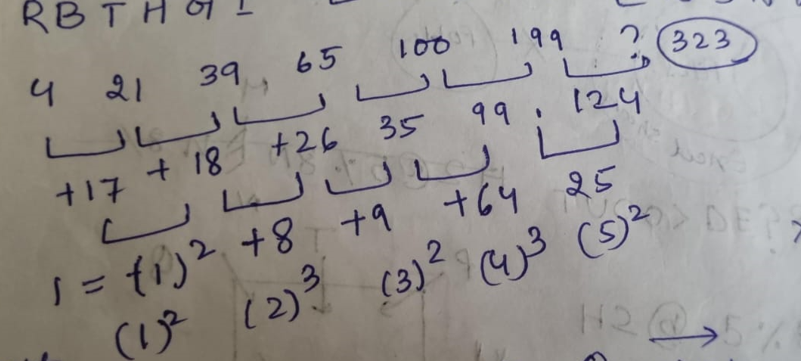 RBTHGI
4 21 39 65 100 199 ? (323)
+17 +18 +26 35 99 . 124
1 = (1)² +8 +9 +64 25
(1)² (2)³ (3)² (4)³ (5)²